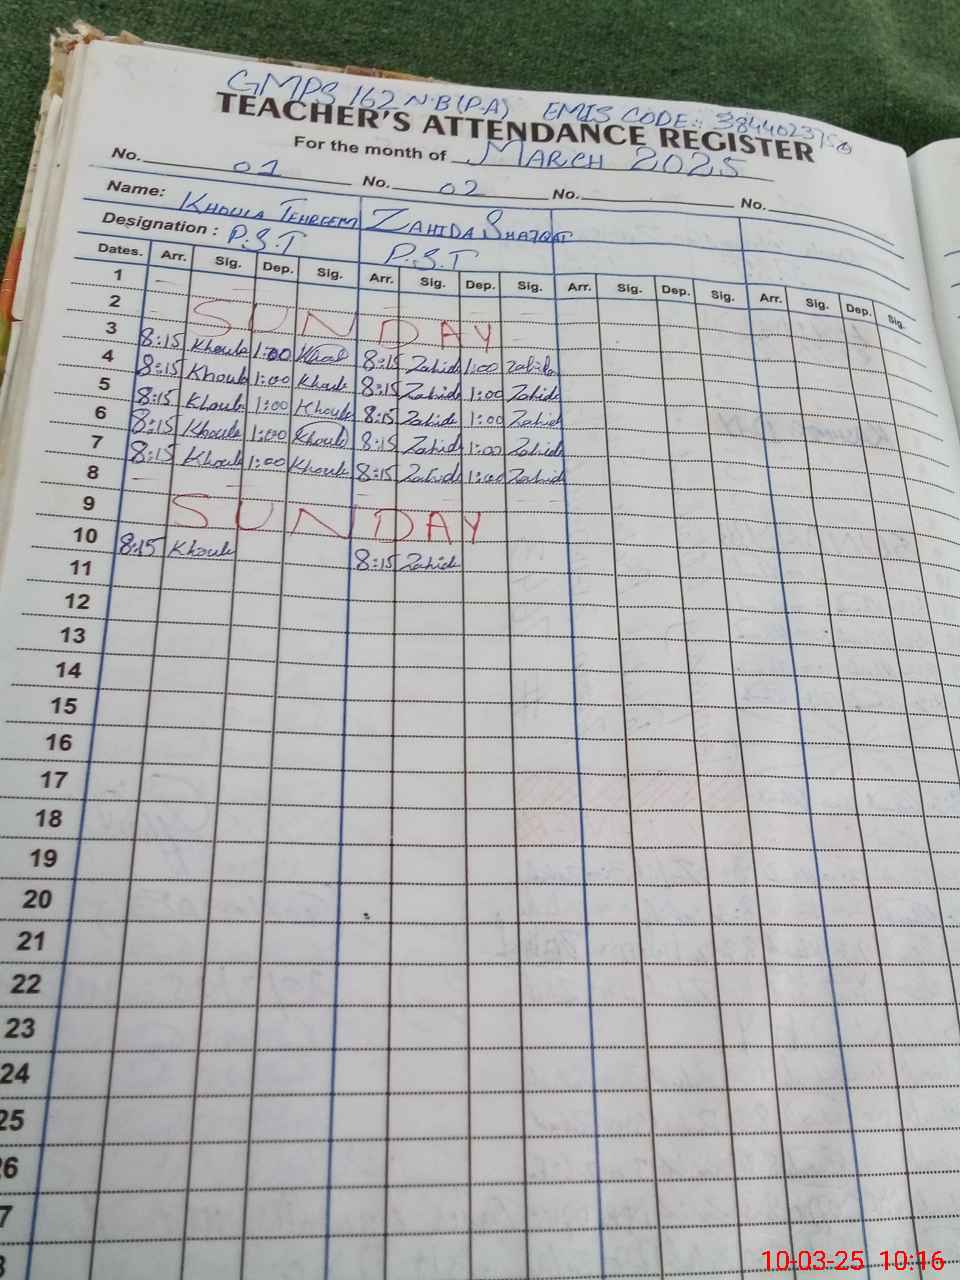 GMPS 162 N.B (P.A) EMIS CODE:
TEACHER'S ATTENDANCE REGISTER
For the month of MARCH 2025
No. 01 No. 02 No. No.
Name: KHOULA TEHREEM ZAHIDA
Designation: P.S.T P.S.T
Dates. Arr. Sig. Dep. Sig. Arr. Sig. Dep. Sig. Arr. Sig. Dep. Sig. Arr. Sig. Dep. Sig.
1
2 SUNDAY
3 8:15 Khoula 1:00 8:15 Zahida 1:00 Zahida
4 8:15 Khoula 1:00 Khoula 8:15 Zahida 1:00 Zahida
5 8:15 Khoula 1:00 Khoula 8:15 Zahida 1:00 Zahida
6 8:15 Khoula 1:00 Khoula 8:15 Zahida 1:00 Zahida
7 8:15 Khoula 1:00 Khoula 8:15 Zahida 1:00 Zahida
8
9 SUNDAY
10 8:15 Khoula 8:15 Zahida
11
12
13
14
15
16
17
18
19
20
21
22
23
24
25
26
7
10-03-25 10:16